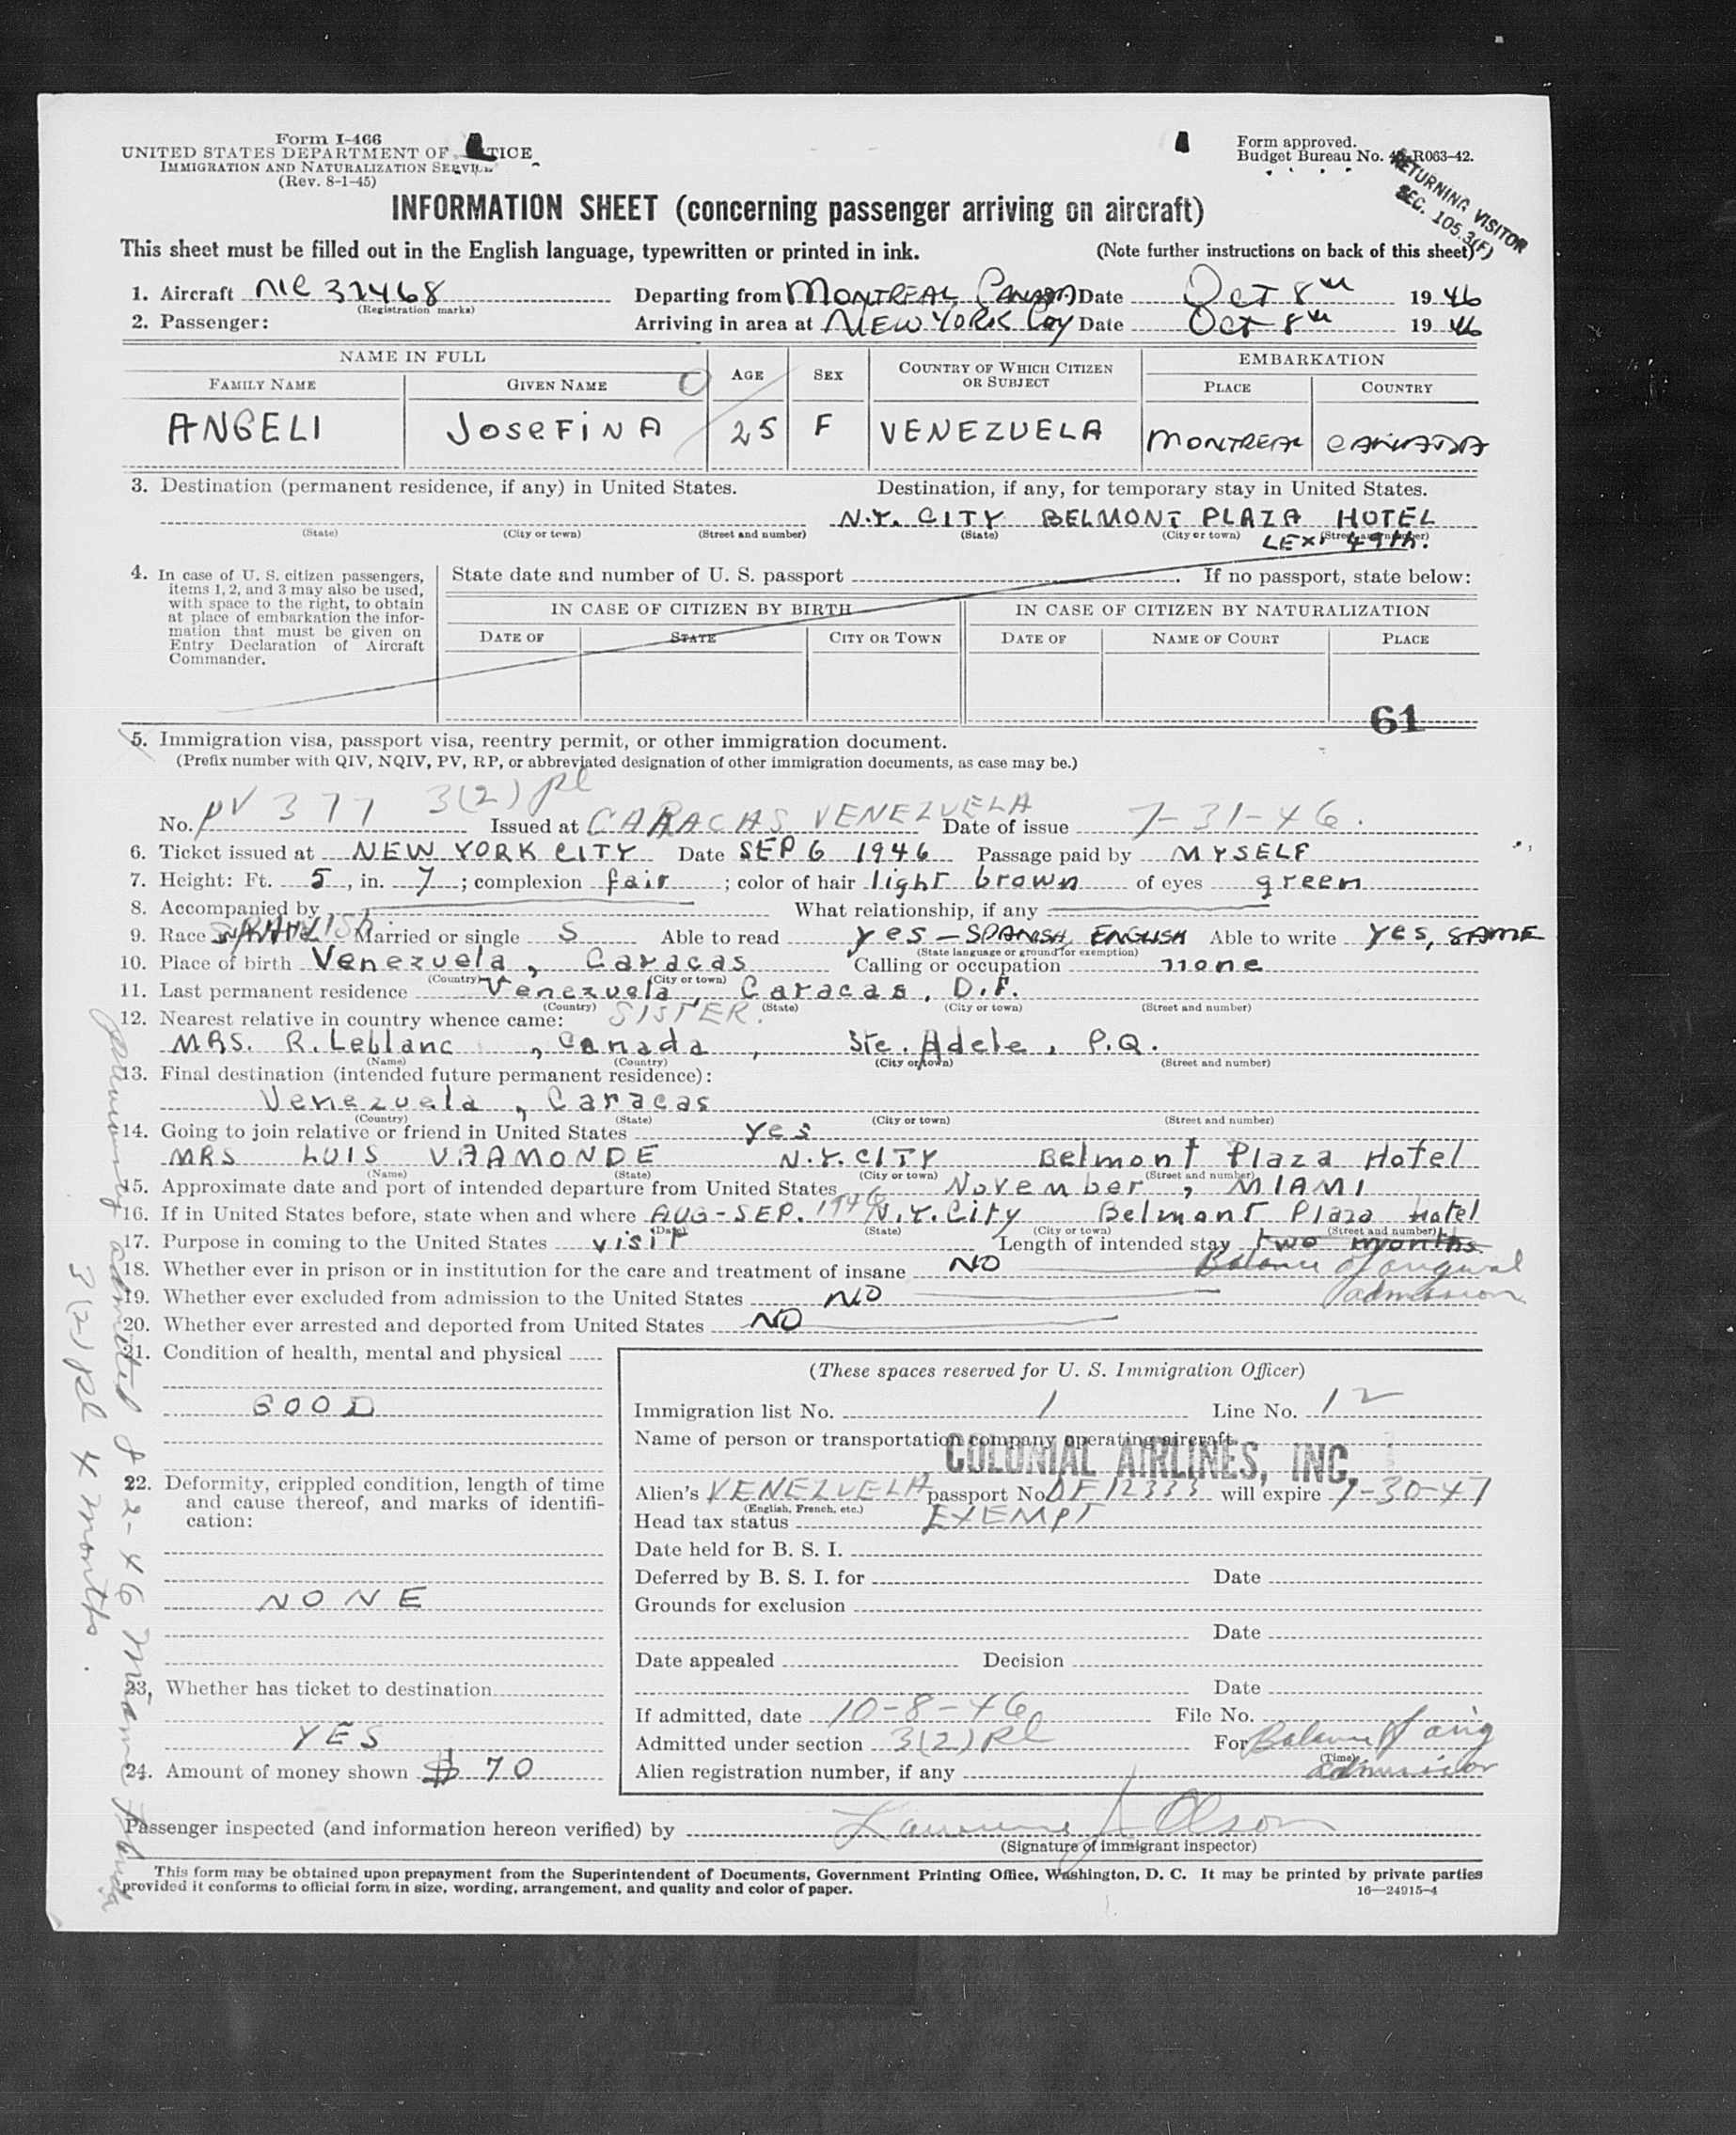 Form I-466
UNITED STATES DEPARTMENT OF TICE
IMMIGRATION AND NATURALIZATION SERVICE
(Rev. 8-1-45)
Form approved.
Budget Bureau No. R063-42.
RETURNING VISITOR
SEC. 105.3(F)
INFORMATION SHEET (concerning passenger arriving on aircraft)
This sheet must be filled out in the English language, typewritten or printed in ink. (Note further instructions on back of this sheet)
1. Aircraft 32468 Departing from MONTREAL CANADA Date OCT 8th 1946
(Registration marks)
2. Passenger: Arriving in area at NEW YORK City Date OCT 8th 1946
NAME IN FULL AGE SEX COUNTRY OF WHICH CITIZEN OR SUBJECT EMBARKATION
FAMILY NAME GIVEN NAME PLACE COUNTRY
ANGELI JOSEFINA 25 F VENEZUELA MONTREAL CANADA
3. Destination (permanent residence, if any) in United States. Destination, if any, for temporary stay in United States.
N.Y. CITY BELMONT PLAZA HOTEL
(State) (City or town) (Street and number) (State) (City or town) (Street and number)
LEX. 49th.
4. In case of U. S. citizen passengers, items 1, 2, and 3 may also be used, with space to the right, to obtain at place of embarkation the information that must be given on Entry Declaration of Aircraft Commander.
State date and number of U. S. passport . If no passport, state below:
IN CASE OF CITIZEN BY BIRTH IN CASE OF CITIZEN BY NATURALIZATION
DATE OF STATE CITY OR TOWN DATE OF NAME OF COURT PLACE
61
5. Immigration visa, passport visa, reentry permit, or other immigration document.
(Prefix number with QIV, NQIV, PV, RP, or abbreviated designation of other immigration documents, as case may be.)
No. PV 377 3(2) Issued at CARACAS VENEZUELA Date of issue 7-31-46.
6. Ticket issued at NEW YORK CITY Date SEP 6 1946 Passage paid by MYSELF
7. Height: Ft. 5, in. 7; complexion fair; color of hair light brown of eyes green
8. Accompanied by What relationship, if any
9. Race SPANISH Married or single S Able to read yes - SPANISH, ENGLISH Able to write yes, SAME
(State language or ground for exemption)
10. Place of birth Venezuela, Caracas Calling or occupation none
(Country) (City or town)
11. Last permanent residence Venezuela, Caracas, D.F.
(Country) (State) (City or town) (Street and number)
12. Nearest relative in country whence came: SISTER.
MRS. R. Leblanc, Canada, Ste. Adele, P.Q.
(Name) (Country) (City or town) (Street and number)
13. Final destination (intended future permanent residence):
Venezuela, Caracas
(Country) (State) (City or town) (Street and number)
14. Going to join relative or friend in United States yes
MRS LUIS VAAMONDE N.Y. CITY Belmont Plaza Hotel
(Name) (State) (City or town) (Street and number)
15. Approximate date and port of intended departure from United States November, MIAMI
16. If in United States before, state when and where AUG-SEP. 1946 N.Y. City Belmont Plaza Hotel
(Date) (State) (City or town) (Street and number)
17. Purpose in coming to the United States visit Length of intended stay two months.
Balance of original admission
18. Whether ever in prison or in institution for the care and treatment of insane NO
19. Whether ever excluded from admission to the United States NO
20. Whether ever arrested and deported from United States NO
21. Condition of health, mental and physical
GOOD
22. Deformity, crippled condition, length of time and cause thereof, and marks of identification:
NONE
23. Whether has ticket to destination
YES
24. Amount of money shown $ 70
(These spaces reserved for U. S. Immigration Officer)
Immigration list No. 1 Line No. 12
Name of person or transportation company operating aircraft
COLONIAL AIRLINES, INC.
Alien's VENEZUELA passport No. DF 12333 will expire 7-30-47
(English, French, etc.)
Head tax status EXEMPT
Date held for B. S. I.
Deferred by B. S. I. for Date
Grounds for exclusion
Date
Date appealed Decision
Date
If admitted, date 10-8-46 File No.
Admitted under section 3(2) For Balance of orig admission
(Time)
Alien registration number, if any
Passenger inspected (and information hereon verified) by Olson
(Signature of immigrant inspector)
This form may be obtained upon prepayment from the Superintendent of Documents, Government Printing Office, Washington, D. C. It may be printed by private parties
provided it conforms to official form in size, wording, arrangement, and quality and color of paper. 16—24915-4
Previously admitted 8-2-46 Miami
3(2) 4 months.